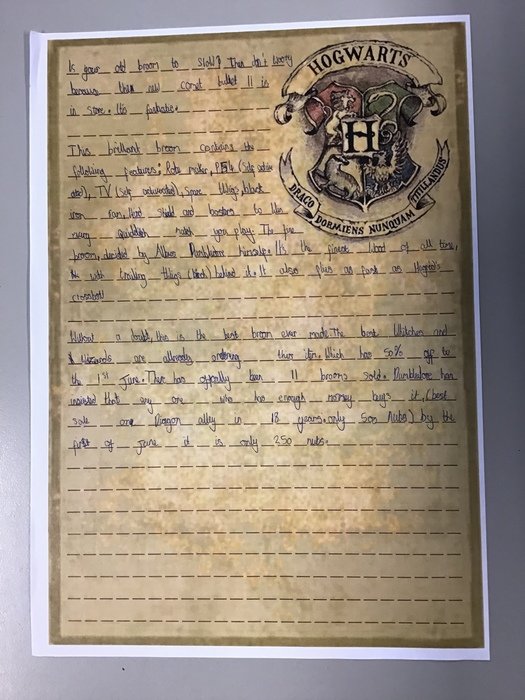 HOGWARTS
H
DRACO DORMIENS NUNQUAM TITILLANDUS
Is your old broom to slow? Then don't worry
because the new comet bullet 11 is
in store. Its fantastic.
This brilliant broom contains the
following features: Potion maker, PS4 (Self
), TV (Self activated), Snare things, black
iron Shield and boosters to
every quidditch match you play. The
broom, decided by Albus Dumbledore himself. It's the finest wood of all time,
with trailing things (birch) behind it. It also flies as fast as Hagrid's
crossbow!
Without a doubt, this is the best broom ever made. The best Witches and
Wizards are allready ordering their item. Which has 50% off to
the 1st June. There has been 11 brooms sold. Dumbledore has
insisted that any one who has enough money buys it. (best
sale on Diagon alley in 18 years. only 500 Nubs) by the
first of june it is only 250 nubs.